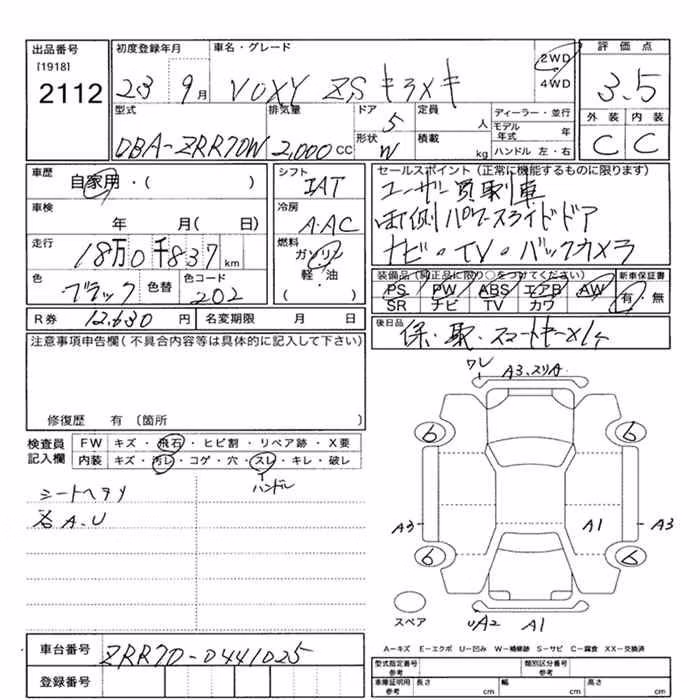 出品番号
[1918]
2112
初度登録年月
23 9月
車名・グレード
VOXY ZS キラメキ
2WD
4WD
評価点
3.5
外装 内装
C C
型式
DBA-ZRR70W
排気量
2,000 CC
ドア
5
形状
W
定員
人
積載
kg
ディーラー・並行
モデル年式 年
ハンドル 左・右
車歴
自家用・( )
シフト
IAT
車検
年 月( 日)
冷房
A・AAC
走行
18万0千837 km
燃料
ガソリン
軽・油
( )
色
ブラック
色替
色コード
202
R券 12,630 円
名変期限 月 日
セールスポイント(正常に機能するものに限ります)
ユーザー買取車
両側パワースライドドア
ナビ・TV・バックカメラ
装備品(純正品に限り○をつけてください)
新車保証書
PS PW ABS エアB AW
SR ナビ TV カワ
有・無
後日品
保・取・スマートキー×1ヶ
注意事項申告欄(不具合内容等は具体的に記入して下さい)
修復歴 有 〔箇所 〕
検査員記入欄
FW キズ・飛石・ヒビ割・リペア跡・X要
内装 キズ・汚レ・コゲ・穴・スレ・キレ・破レ
ハンドル
シートヘタリ
各A・U
ワレ
A3、スリキズ
6 6
A3 A1 A3
6 6
スペア
UA2 A1
A-キズ E-エクボ U-凹み W-補修跡 S-サビ C-腐食 XX-交換済
車台番号
ZRR70-0441025
登録番号
型式指定番号 参考
類別区分番号
車庫証明用 参考
長さ cm 幅 cm 高さ cm